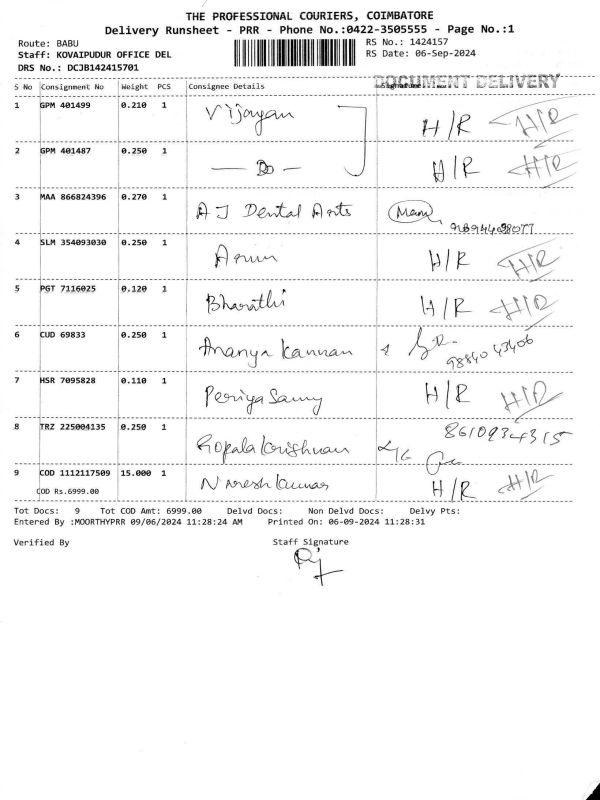 THE PROFESSIONAL COURIERS, COIMBATORE
Delivery Runsheet - PRR - Phone No.:0422-3505555 - Page No.:1
Route: BABU
RS No.: 1424157
Staff: KOVAIPUDUR OFFICE DEL
RS Date: 06-Sep-2024
DRS No.: DCJB142415701
DOCUMENT DELIVERY
S No Consignment No Weight PCS Consignee Details
1 GPM 401499 0.210 1 Vijayan H/R H/R
2 GPM 401487 0.250 1 — Do — H/R H/R
3 MAA 866824396 0.270 1 A J Dental Arts
4 SLM 354093030 0.250 1 Arun H/R H/R
5 PGT 7116025 0.120 1 Bharathi H/R H/R
6 CUD 69833 0.250 1 Ananya Kannan
98840 43406
7 HSR 7095828 0.110 1 Periya Samy H/R H/R
8 TRZ 225004135 0.250 1 Gopala Krishnan 8610934315
9 COD 1112117509 15.000 1 Naresh Kumar H/R H/R
COD Rs.6999.00
Tot Docs: 9 Tot COD Amt: 6999.00 Delvd Docs: Non Delvd Docs: Delvy Pts:
Entered By :MOORTHYPRR 09/06/2024 11:28:24 AM Printed On: 06-09-2024 11:28:31
Verified By Staff Signature